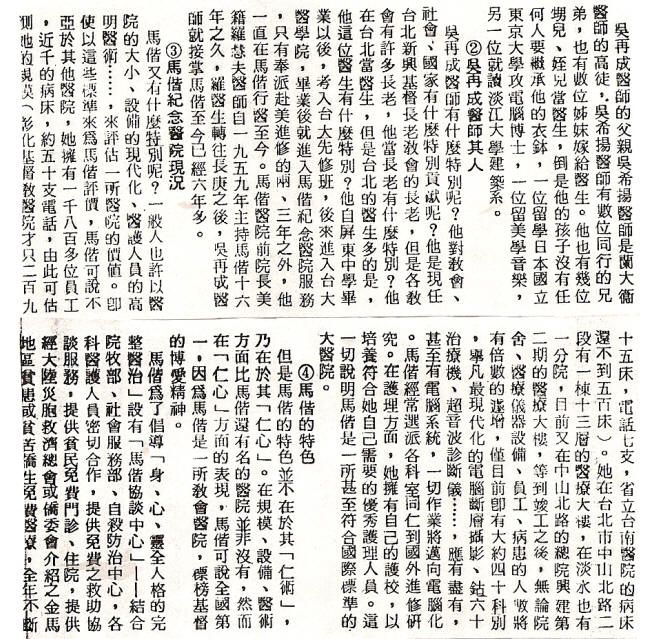 吳再成醫師的父親吳希揚醫師是蘭大衞
醫師的高徒,吳希揚醫師有數位同行的兄
弟,也有數位姊妹嫁給醫生。他也有幾位
甥兒、姪兒當醫生,倒是他的孩子沒有任
何人要繼承他的衣鉢,一位留學日本國立
東京大學攻電腦博士,一位留美學音樂,
另一位就讀淡江大學建築系。
②吳再成醫師其人
吳再成醫師有什麼特別呢?他對敎會、
社會、國家有什麼特別貢獻呢?他是現任
台北新興基督長老敎會的長老,但是各敎
會有許多長老,他當長老有什麼特別?他
在台北當醫生,但是台北的醫生多的是,
他這位醫生有什麼特別?他自屏東中學畢
業以後,考入台大先修班,後來進入台大
醫學院,畢業後就進入馬偕紀念醫院服務
,只有奉派赴美進修的兩、三年之外,他
一直在馬偕行醫至今。馬偕醫院前院長美
籍羅慧夫醫師自一九五九年主持馬偕十六
年之久,羅醫生轉往長庚之後,吳再成醫
師就接掌馬偕至今已經六年多。
③馬偕紀念醫院現況
馬偕又有什麼特別呢?一般人也許以醫
院的大小、設備的現代化、醫護人員的高
明醫術……,來評估一所醫院的價值。卽
使以這些標準來爲馬偕評價,馬偕可說不
亞於其他醫院,她擁有一千八百多位員工
,近千的病床,約五十支電話,由此可估
測她的規模(彰化基督敎醫院才只二百九
十五床,電話七支,省立台南醫院的病床
還不到五百床)。她在台北市中山北路二
段有一棟十三層的醫療大樓,在淡水也有
一分院,目前又在中山北路的總院興建第
二期的醫療大樓,等到竣工之後,無論院
舍、醫療儀器設備、員工、病患的人數將
有倍數的遞增,僅目前卽有大約四十科別
,舉凡最現代化的電腦斷層攝影、鈷六十
治療機、超音波診斷儀……,應有盡有,
甚至有電腦系統,一切作業將邁向電腦化
。馬偕經常選派各科室同仁到國外進修硏
究。在護理方面,她擁有自己的護校,以
培養符合她自己需要的優秀護理人員。這
一切說明馬偕是一所甚至符合國際標準的
大醫院。
④馬偕的特色
但是馬偕的特色並不在於其「仁術」,
乃在於其「仁心」。在規模、設備、醫術
方面比馬偕還有名的醫院並非沒有,然而
在「仁心」方面的表現,馬偕可說全國第
一,因爲馬偕是一所敎會醫院,標榜基督
的博愛精神。
馬偕爲了倡導「身、心、靈全人格的完
整醫治」設有「馬偕協談中心」——結合
院牧部、社會服務部、自殺防治中心,各
科醫護人員密切合作,提供免費之救助協
談服務,提供貧民免費門診、住院,提供
經大陸災胞救濟總會或僑委會介紹之金馬
地區貧患或貧苦僑生免費醫療,全年不斷